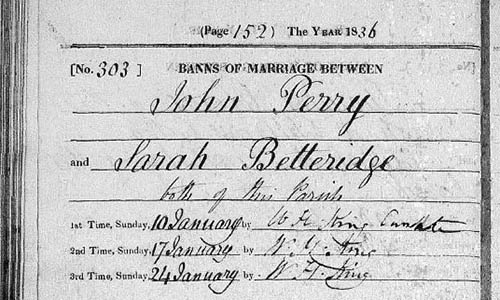 (Page 152) The Year 1836
[No. 303] BANNS OF MARRIAGE BETWEEN
John Perry
and Sarah Betteridge
both of this Parish
1st Time, Sunday, 10 January by W H King Curate
2nd Time, Sunday, 17 January by W H King
3rd Time, Sunday, 24 January by W H King